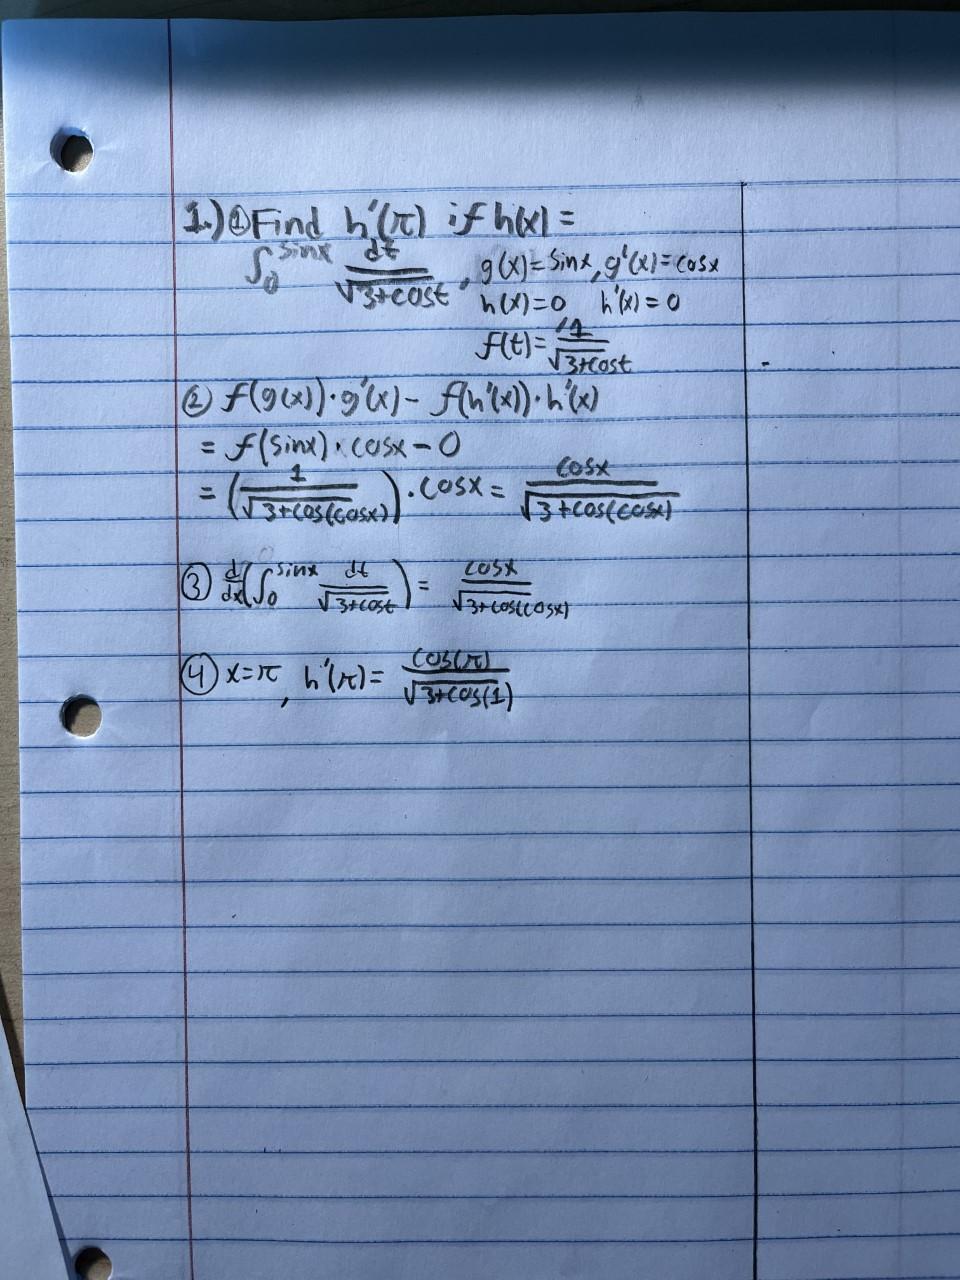 1.) ① Find h'(π) if h(x) =
∫₀^sinx dt/√(3+cost) , g(x)=sinx, g'(x)=cosx
h(x)=0 h'(x)=0
f(t)= 1/√(3+cost)
② f(g(x))·g'(x) - f(h'(x))·h'(x)
= f(sinx)·cosx - 0
= (1/√(3+cos(cosx)))·cosx = cosx/√(3+cos(cosx))
③ d/dx(∫₀^sinx dt/√(3+cost)) = cosx/√(3+cos(cosx))
④ x=π, h'(π)= cos(π)/√(3+cos(1))